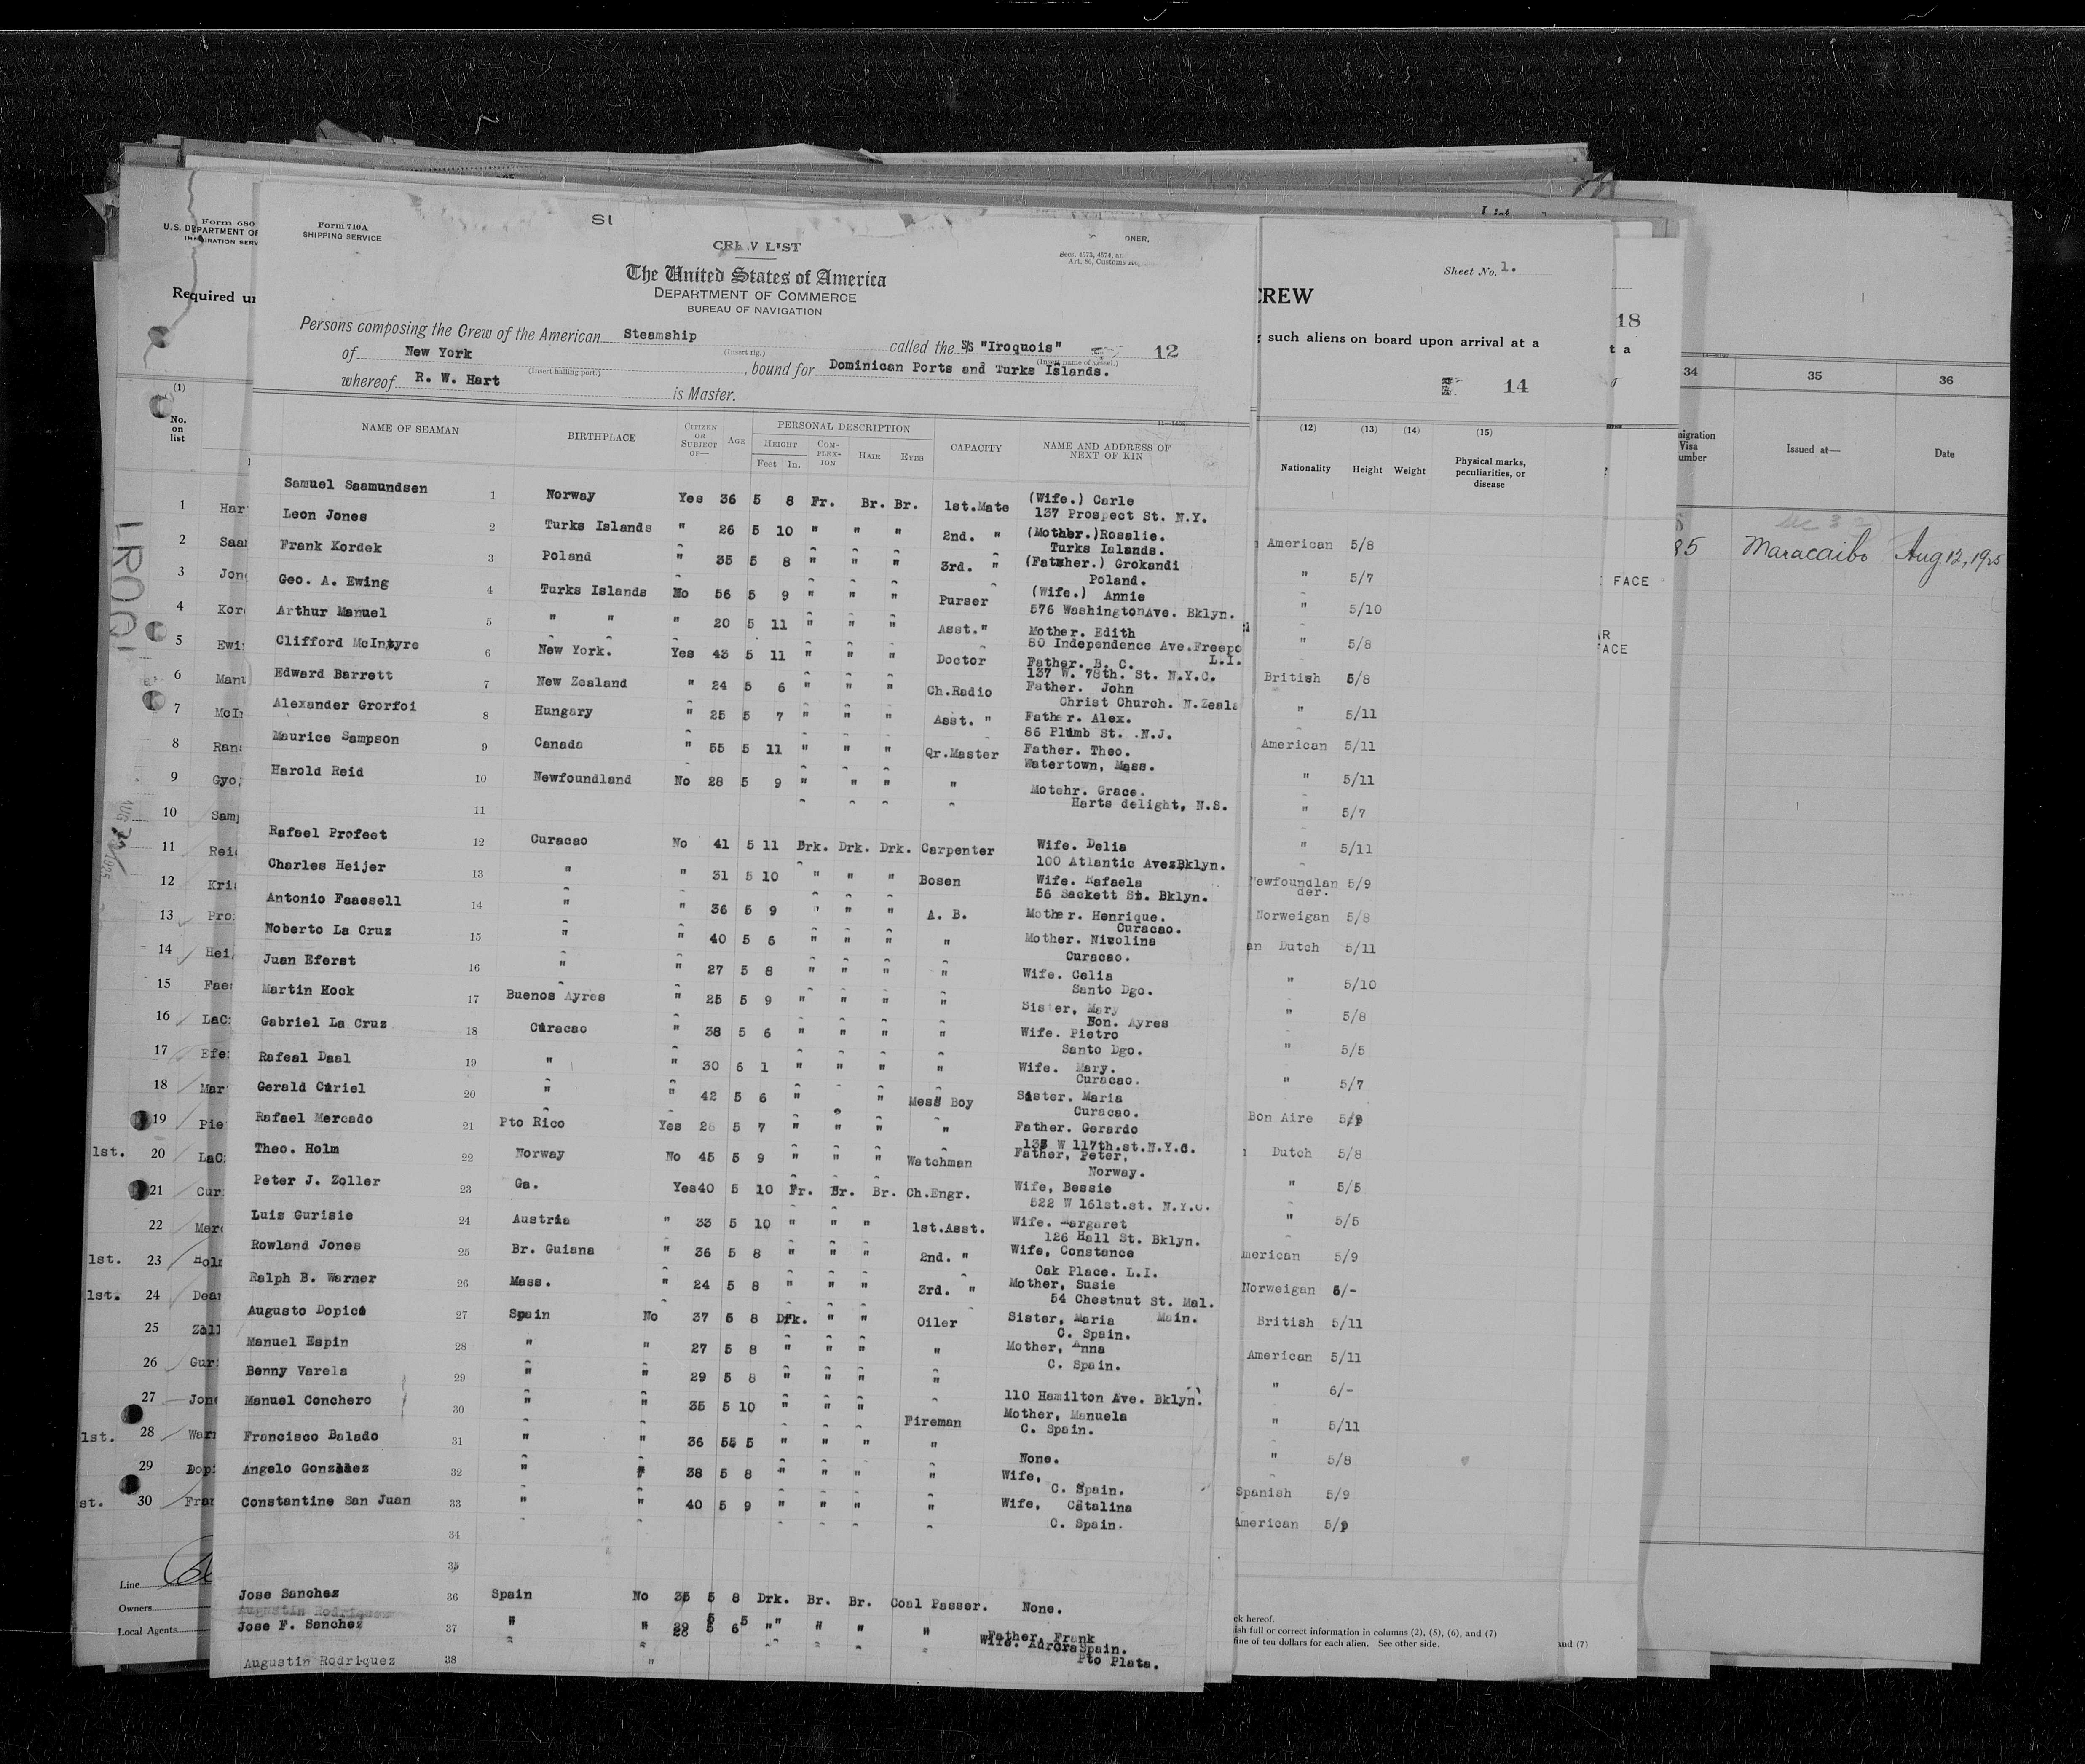 Form 710A
SHIPPING SERVICE
CREW LIST
The United States of America
DEPARTMENT OF COMMERCE
BUREAU OF NAVIGATION
Persons composing the Crew of the American Steamship called the SS "Iroquois" 12
(Insert rig.) (Insert name of vessel.)
of New York, bound for Dominican Ports and Turks Islands.
(Insert hailing port.)
whereof R. W. Hart is Master.
NAME OF SEAMAN BIRTHPLACE CITIZEN OR SUBJECT OF— AGE PERSONAL DESCRIPTION CAPACITY NAME AND ADDRESS OF NEXT OF KIN
HEIGHT COMPLEXION HAIR EYES
Feet In.
Samuel Saamundsen 1 Norway Yes 36 5 8 Fr. Br. Br. 1st.Mate (Wife.) Carle
137 Prospect St. N.Y.
Leon Jones 2 Turks Islands " 26 5 10 " " " 2nd. " (Mother.)Rosalie.
Turks Islands.
Frank Kordek 3 Poland " 35 5 8 " " " 3rd. " (Father.) Grokandi
Poland.
Geo. A. Ewing 4 Turks Islands No 56 5 9 " " " Purser (Wife.) Annie
576 WashingtonAve. Bklyn.
Arthur Manuel 5 " " " 20 5 11 " " " Asst." Mother. Edith
80 Independence Ave.Freepo
L.I.
Clifford McIntyre 6 New York. Yes 43 5 11 " " " Doctor Father. B. C.
137 W. 78th. St. N.Y.C.
Edward Barrett 7 New Zealand " 24 5 6 " " " Ch.Radio Father. John
Christ Church. N.Zeala
Alexander Grorfoi 8 Hungary " 25 5 7 " " " Asst. " Father. Alex.
86 Plumb St. .N.J.
Maurice Sampson 9 Canada " 55 5 11 " " " Qr.Master Father. Theo.
Watertown, Mass.
Harold Reid 10 Newfoundland No 28 5 9 " " " " Motehr. Grace.
Harts delight, N.S.
11
Rafael Profeet 12 Curacao No 41 5 11 Drk. Drk. Drk. Carpenter Wife. Delia
100 Atlantic Aves.Bklyn.
Charles Heijer 13 " " 31 5 10 " " " Bosen Wife. Rafaela
56 Sackett St. Bklyn.
Antonio Faaesell 14 " " 36 5 9 " " " A. B. Mother. Henrique.
Curacao.
Noberto La Cruz 15 " " 40 5 6 " " " " Mother. Nivolina
Curacao.
Juan Eferst 16 " " 27 5 8 " " " " Wife. Celia
Santo Dgo.
Martin Hock 17 Buenos Ayres " 25 5 9 " " " " Sister, Mary
Bon. Ayres
Gabriel La Cruz 18 Curacao " 38 5 6 " " " " Wife. Pietro
Santo Dgo.
Rafeal Daal 19 " " 30 6 1 " " " " Wife. Mary.
Curacao.
Gerald Curiel 20 " " 42 5 6 " " Mess Boy Sister. Maria
Curacao.
Rafael Mercado 21 Pto Rico Yes 26 5 7 " " " " Father. Gerardo
W 117th.st.N.Y.C.
Theo. Holm 22 Norway No 45 5 9 " " " Watchman Father, Peter,
Norway.
Peter J. Zoller 23 Ga. Yes40 5 10 Fr. Br. Br. Ch.Engr. Wife, Bessie
522 W 161st.st. N.Y.C.
Luis Gurisie 24 Austria " 33 5 10 " " " 1st.Asst. Wife. Margaret
126 Hall St. Bklyn.
Rowland Jones 25 Br. Guiana " 36 5 8 " " " 2nd. " Wife, Constance
Oak Place. L.I.
Ralph B. Warner 26 Mass. " 24 5 8 " " " 3rd. " Mother, Susie
54 Chestnut St. Mal.
Augusto Dopico 27 Spain No 37 5 8 Drk. " " Oiler Sister, Maria Main.
C. Spain.
Manuel Espin 28 " " 27 5 8 " " " " Mother, Anna
C. Spain.
Benny Varela 29 " " 29 5 8 " " " "
110 Hamilton Ave. Bklyn.
Manuel Conchero 30 " " 35 5 10 " " " Fireman Mother, Manuela
C. Spain.
Francisco Balado 31 " " 36 55 5 " " " " None.
Angelo Gonzalez 32 " " 38 5 8 " " " " Wife,
C. Spain.
Constantine San Juan 33 " " 40 5 9 " " " " Wife, Catalina
C. Spain.
34
35
Jose Sanchez 36 Spain No 35 5 8 Drk. Br. Br. Coal Passer. None.
Augustin Rodriquez
Jose F. Sanchez 37 " " 5 6 " " " " Father, Frank
Wife. Aurora Spain.
Augustin Rodriquez 38 " Pto Plata.
Form 680
U.S. DEPARTMENT OF
IMMIGRATION SERV
Required un
(1)
No. on list
1 Har
2 Saa
3 Jon
4 Kor
5 Ewi
6 Manu
7 McIn
8 Ran
9 Gyo
10 Samp
11 Rei
12 Kri
13 Pro
14 Hei
15 Fae
16 LaC
17 Efe
18 Mar
19 Pie
1st. 20 LaC
21 Cur
22 Merc
1st. 23 Holm
1st. 24 Dean
25 Zoll
26 Gur
27 Jone
1st. 28 Warn
29 Dopi
st. 30 Fran
Line
Owners
Local Agents
Sheet No. 1.
CREW
such aliens on board upon arrival at a
14
(12) (13) (14) (15)
Nationality Height Weight Physical marks, peculiarities, or disease
American 5/8
" 5/7
" 5/10
" 5/8
British 5/8
" 5/11
American 5/11
" 5/11
" 5/7
" 5/11
ewfoundlan 5/9
der.
Norweigan 5/8
an Dutch 5/11
" 5/10
" 5/8
" 5/5
" 5/7
Bon Aire
Dutch 5/8
" 5/5
" 5/5
merican 5/9
Norweigan 6/-
British 5/11
American 5/11
" 6/-
" 5/11
" 5/8
Spanish 5/9
American
ck hereof.
ish full or correct information in columns (2), (5), (6), and (7)
fine of ten dollars for each alien. See other side.
18
t a
FACE
FACE
and (7)
34 35 36
migration Visa umber Issued at— Date
85 Maracaibo Aug. 12, 1925